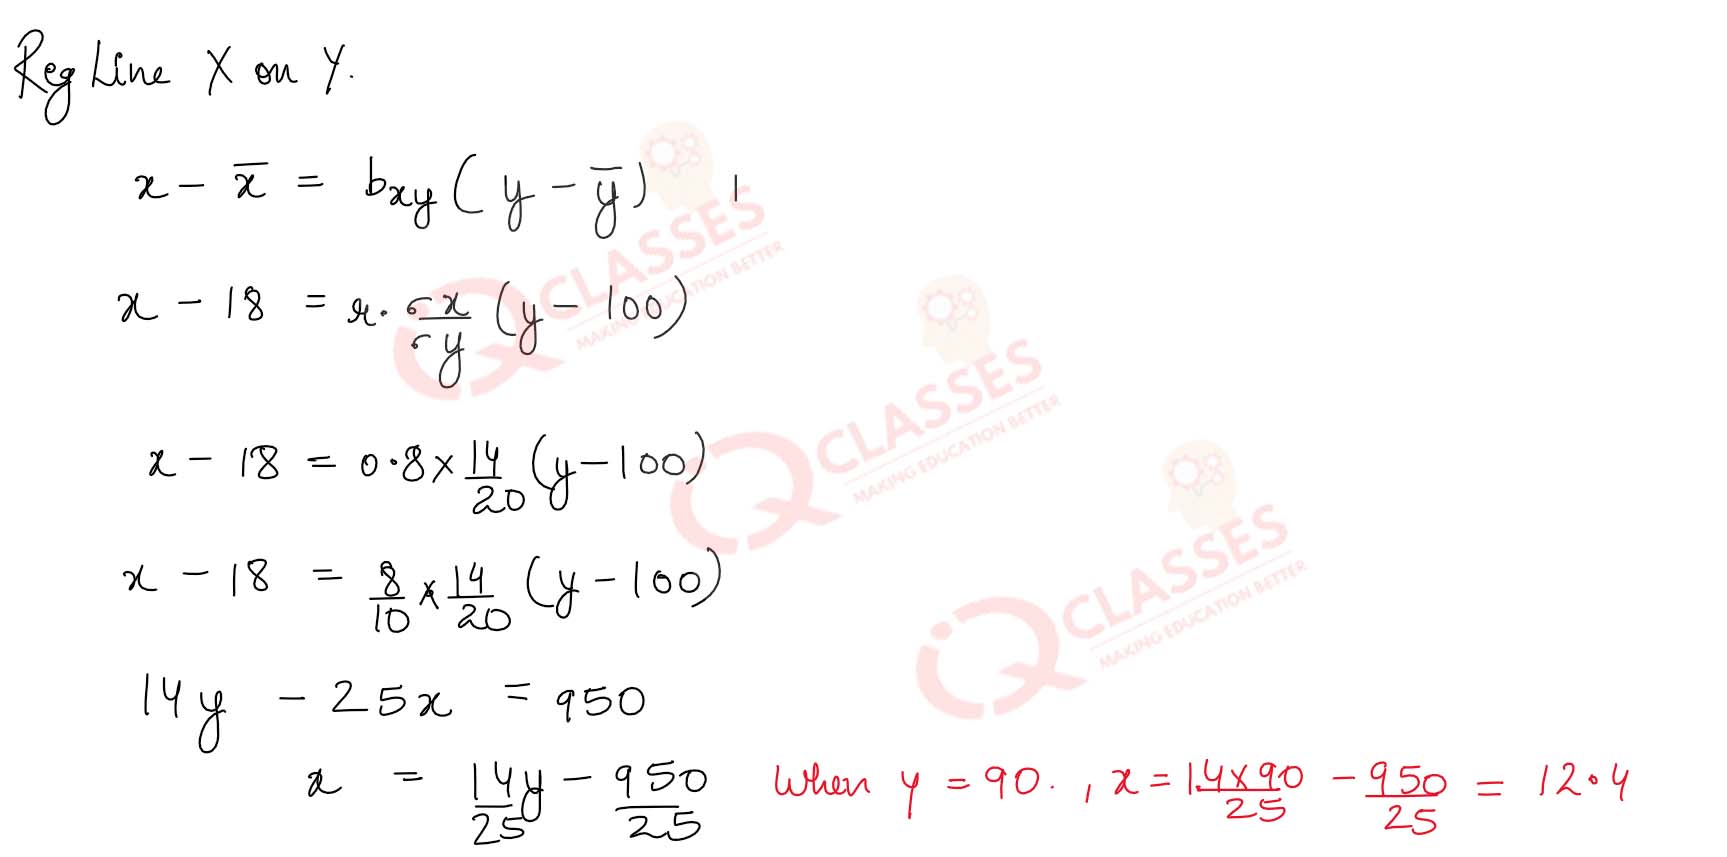 Reg Line X on Y.
x - x̄ = bxy (y - ȳ)
x - 18 = r. σx/σy (y - 100)
x - 18 = 0.8 × 14/20 (y - 100)
x - 18 = 8/10 × 14/20 (y - 100)
14y - 25x = 950
x = 14y/25 - 950/25 When y = 90. , x = 14×90/25 - 950/25 = 12.4
iQ CLASSES
MAKING EDUCATION BETTER
iQ CLASSES
MAKING EDUCATION BETTER
iQ CLASSES
MAKING EDUCATION BETTER